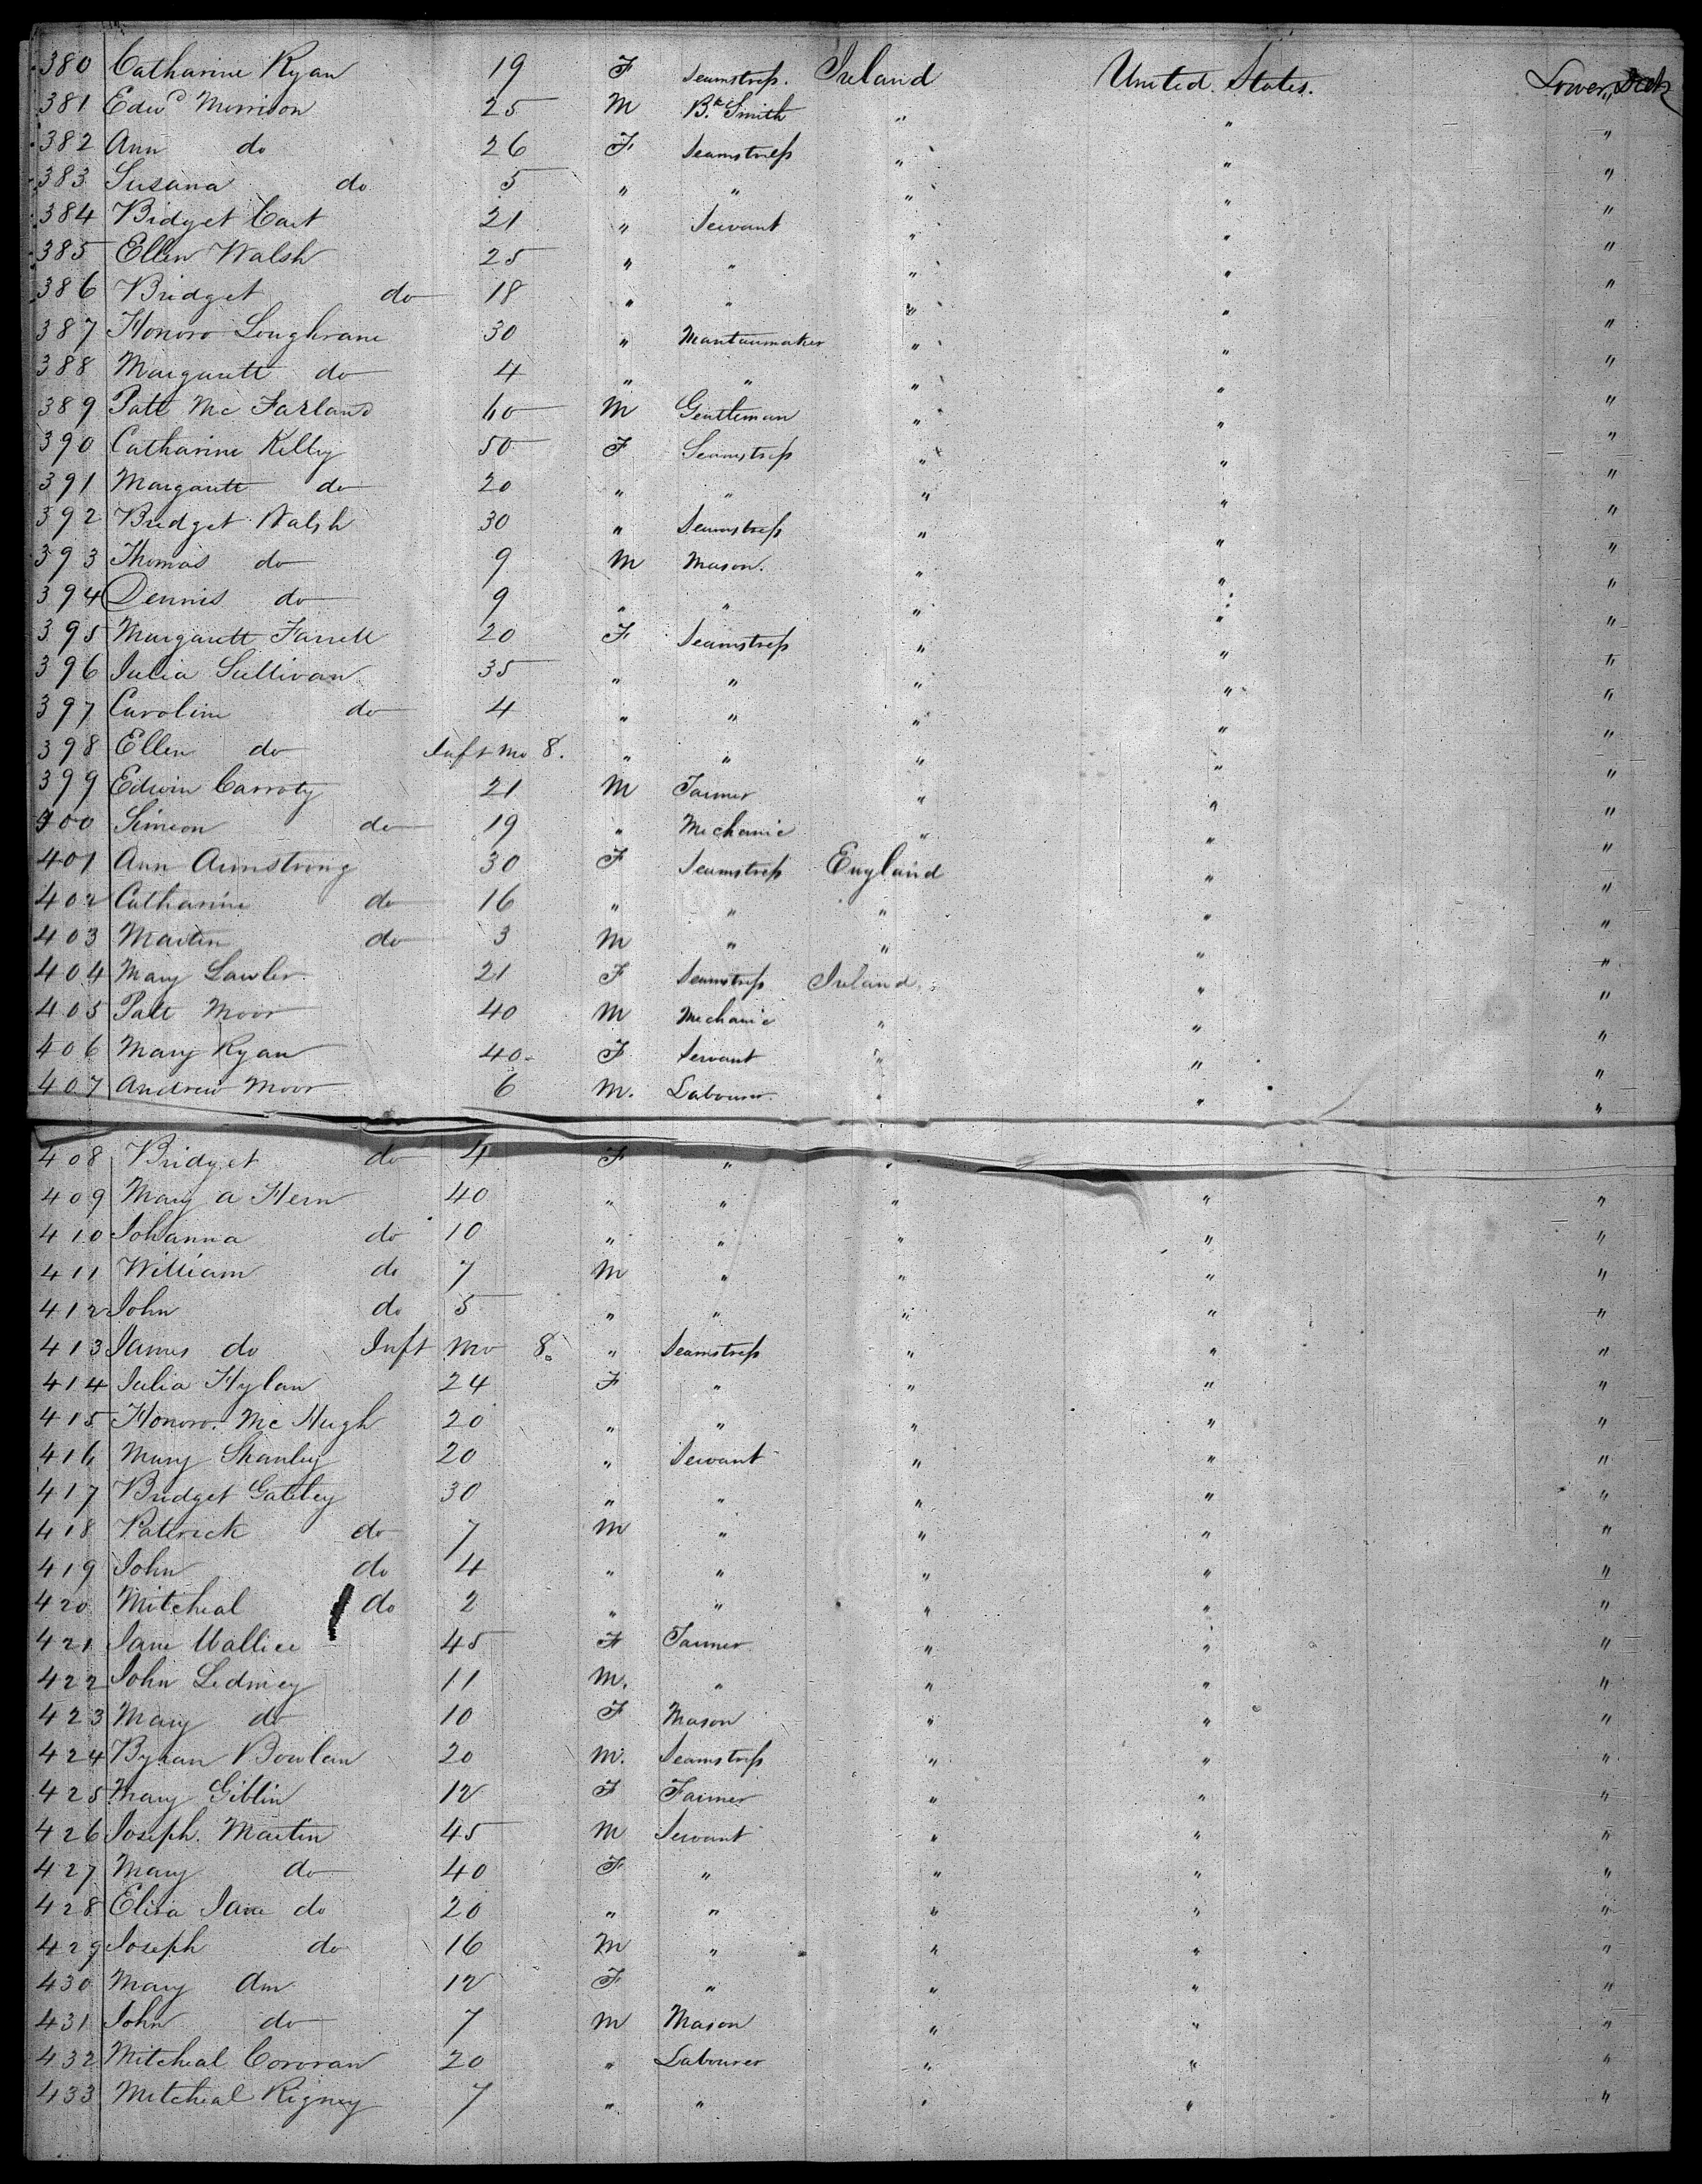 380 Catharine Ryan 19 F Seamstress. Ireland United States. Lower Deck
381 Edwd Morrison 25 M Bk. Smith " " "
382 Ann do 26 F Seamstress " " "
383 Susana do 5 " " " " "
384 Bidget Cart 21 " Servant " " "
385 Ellen Walsh 25 " " " " "
386 Bridget do 18 " " " " "
387 Honoro Loughrane 30 " Mantuamaker " " "
388 Margarett do 4 " " " " "
389 Patt Mc Farland 60 M Gentleman " " "
390 Catharine Kelley 50 F Seamstress " " "
391 Margarett do 20 " " " " "
392 Bridget Walsh 30 " Seamstress " " "
393 Thomas do 9 M Mason. " " "
394 Dennis do 9 " " " " "
395 Margarett Farrell 20 F Seamstress " " "
396 Julia Sullivan 35 " " " " "
397 Caroline do 4 " " " " "
398 Ellen do Inft mo 8. " " " " "
399 Edwin Carroty 21 M Farmer " " "
400 Simeon do 19 " Mechanic " " "
401 Ann Armstrong 30 F Seamstress England " "
402 Catharine do 16 " " " " "
403 Martin do 3 M " " " "
404 Mary Lawler 21 F Seamstress Ireland " "
405 Patt Moor 40 M Mechanic " " "
406 Mary Ryan 40. F Servant " " "
407 Andrew Moor 6 M. Labourer. " " "
408 Bridget do 4 F " "
409 Mary a Hern 40 " " " " "
410 Johanna do 10 " " " " "
411 William do 7 M " " " "
412 John do 5 " " " " "
413 James do Inft Mo 8. " Seamstress " " "
414 Julia Hylan 24 F " " " "
415 Honoro. Mc Hugh 20 " " " " "
416 Mary Shanley 20 " Servant " " "
417 Bridget Gateley 30 " " " " "
418 Paterick do 7 M " " " "
419 John do 4 " " " " "
420 Mitcheal do 2 " " " " "
421 Jane Wallice 45 F Farmer " " "
422 John Ledmey 11 M. " " " "
423 Mary do 10 F Mason " " "
424 Byran Bowlan 20 M. Seamstress " " "
425 Mary Giblin 12 F Farmer " " "
426 Joseph. Martin 45 M Servant " " "
427 Mary do 40 F " " " "
428 Eliza Jane do 20 " " " " "
429 Joseph do 16 M " " " "
430 Mary Am 12 F " " " "
431 John do 7 M Mason " " "
432 Mitcheal Cororan 20 " Labourer " " "
433 Mitcheal Rigney 7 " " " " "